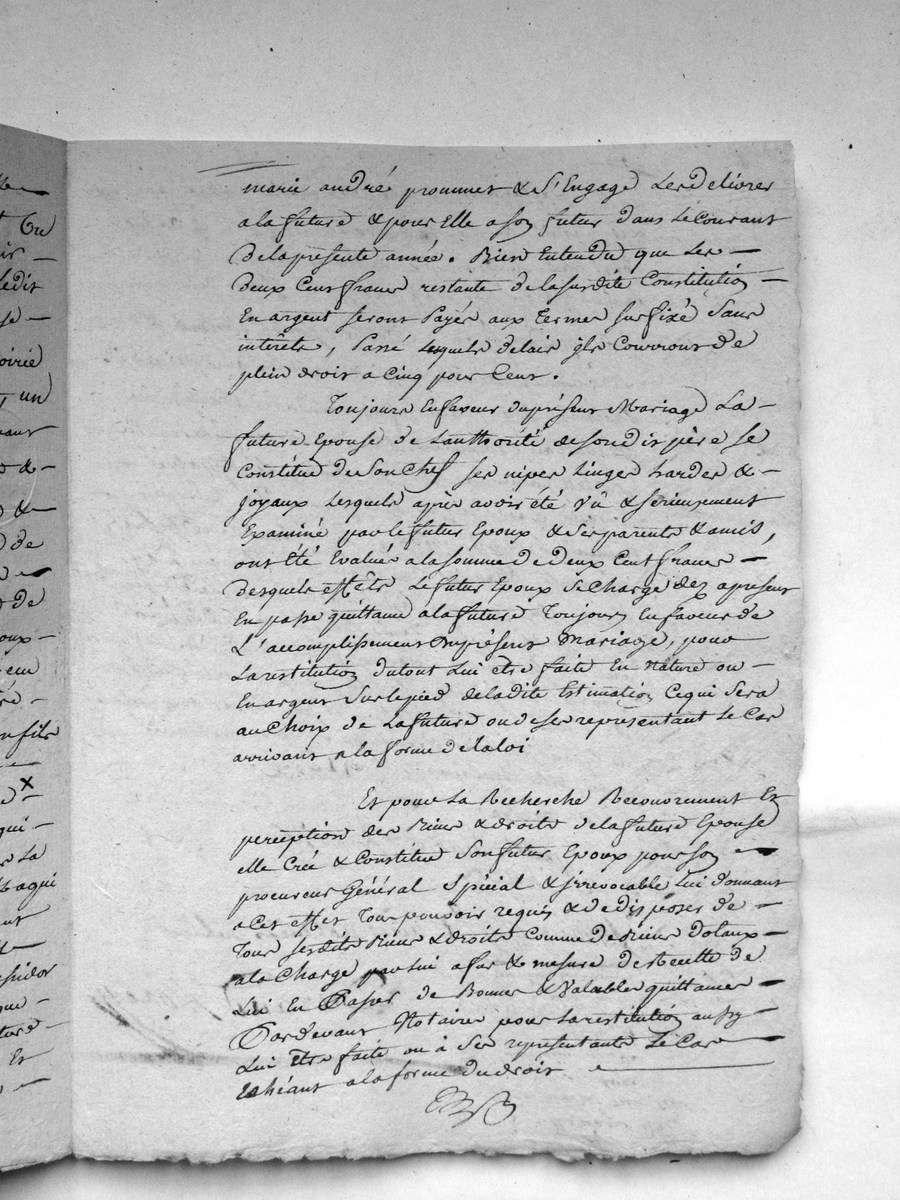 marie andré proumet & S'Engage Les delivrer
a la future & pour Elle a son futur dans Le Courant
de la presente année. Bien Entendu que Les —
deux Cent francs restants de la susdite Constitution —
En argent seront Payés aux Termes sus fixé Sans
interêts, Passé Lesquels delais ils Courront de
plein droit a Cinq pour Cent.
Toujours En faveur du présent Mariage La —
future Epouse de Lauthorité de son dit père se
Constitue de Son Chef ses nipes Linges hardes & -
joyaux Lesquels après avoir été vû & sérieusement
Examiné par le futur Epoux & Ses parents & amis,
ont Eté Evalués a la somme de deux Cent francs —
desquels effets Le futur Epoux se Charge dez apresent
En passe quittance a la future Toujours En faveur de
L'accomplissement du présent Mariage, pour
La restitution du tout Lui être faite En nature ou —
En argent Sur le pied de la dite Estimation Ce qui Sera
au Choix de La future ou de ses representant Le Cas
arrivant a la forme de la loi
Et pour La Recherche Recouvrement Et
perception des Biens & droits de la future Epouse
elle Créé & Constitue Son futur Epoux pour son —
procureur Général Spécial & irrévocable Lui donnant
a Cet effet Tout pouvoir requis & de disposer de —
Tous sesdits Biens & droits Comme de Biens Dotaux —
a la Charge par Lui a fur & mesure de Recette de
Lui En Passer de Bonnes & Valables quittances —
Pardevant Notaires pour La restitution aussy —
Lui Etre faite ou à Ses representants Le Cas —
Echéant a la forme du droit